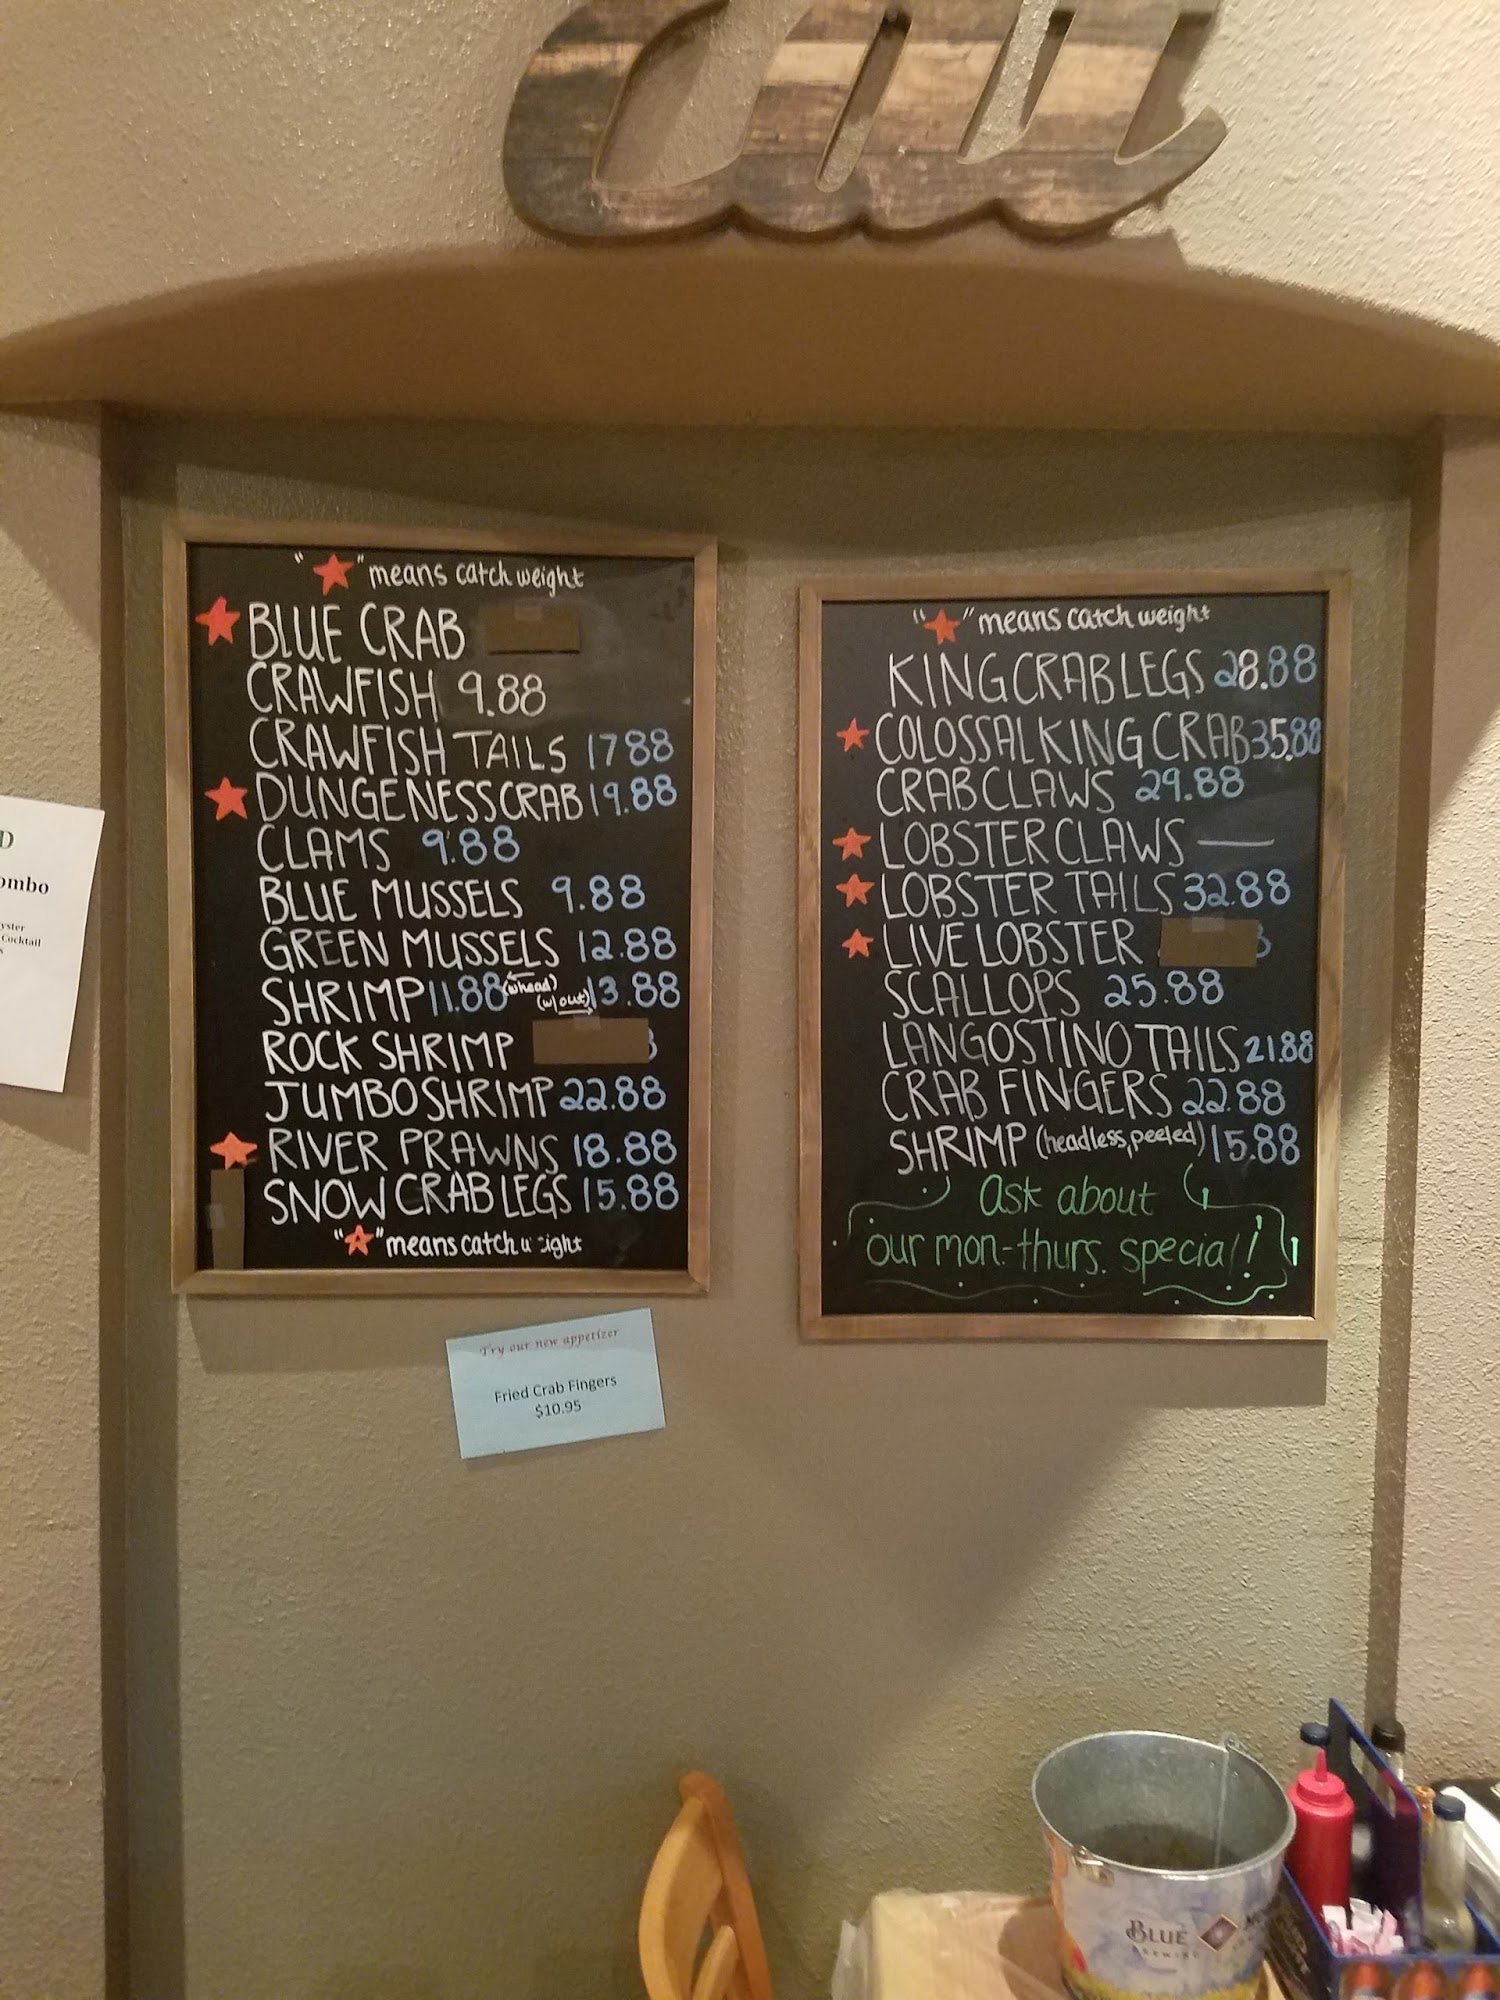 "★" means catch weight
★ BLUE CRAB
CRAWFISH 9.88
CRAWFISH TAILS 17.88
★ DUNGENESS CRAB 19.88
CLAMS 9.88
BLUE MUSSELS 9.88
GREEN MUSSELS 12.88
SHRIMP 11.88 (w/head) (w/out) 13.88
ROCK SHRIMP
JUMBO SHRIMP 22.88
★ RIVER PRAWNS 18.88
SNOW CRAB LEGS 15.88
"★" means catch weight
"★" means catch weight
KING CRAB LEGS 28.88
★ COLOSSAL KING CRAB 35.88
CRAB CLAWS 29.88
★ LOBSTER CLAWS —
★ LOBSTER TAILS 32.88
★ LIVE LOBSTER
SCALLOPS 25.88
LANGOSTINO TAILS 21.88
CRAB FINGERS 22.88
SHRIMP (headless, peeled) 15.88
ask about
our mon.-thurs. special!
Try our new appetizer
Fried Crab Fingers
$10.95
Cocktail
BLUE
BREWING